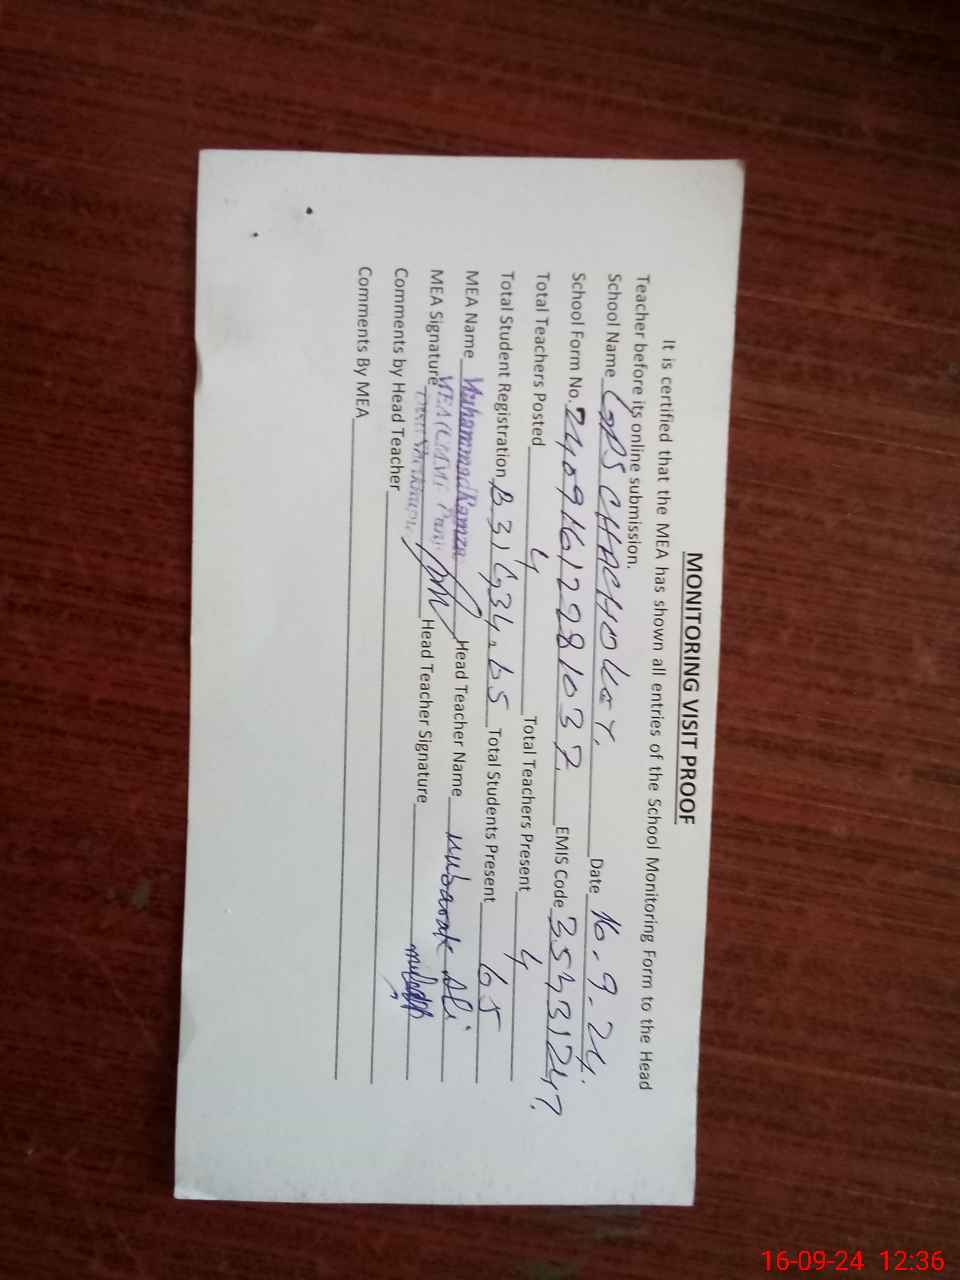 MONITORING VISIT PROOF
It is certified that the MEA has shown all entries of the School Monitoring Form to the Head
Teacher before its online submission.
School Name GPS CHACHOKAY. Date 16.9.24.
School Form No. 24091612281037. EMIS Code 35431247.
Total Teachers Posted 4 Total Teachers Present 4
Total Student Registration B31G34.65 Total Students Present 65
MEA Name Muhammad Ramzan Head Teacher Name Mubarak Ali
MEA (CMMF Punj
MEA Signature Head Teacher Signature
Comments by Head Teacher
Comments By MEA
16-09-24 12:36